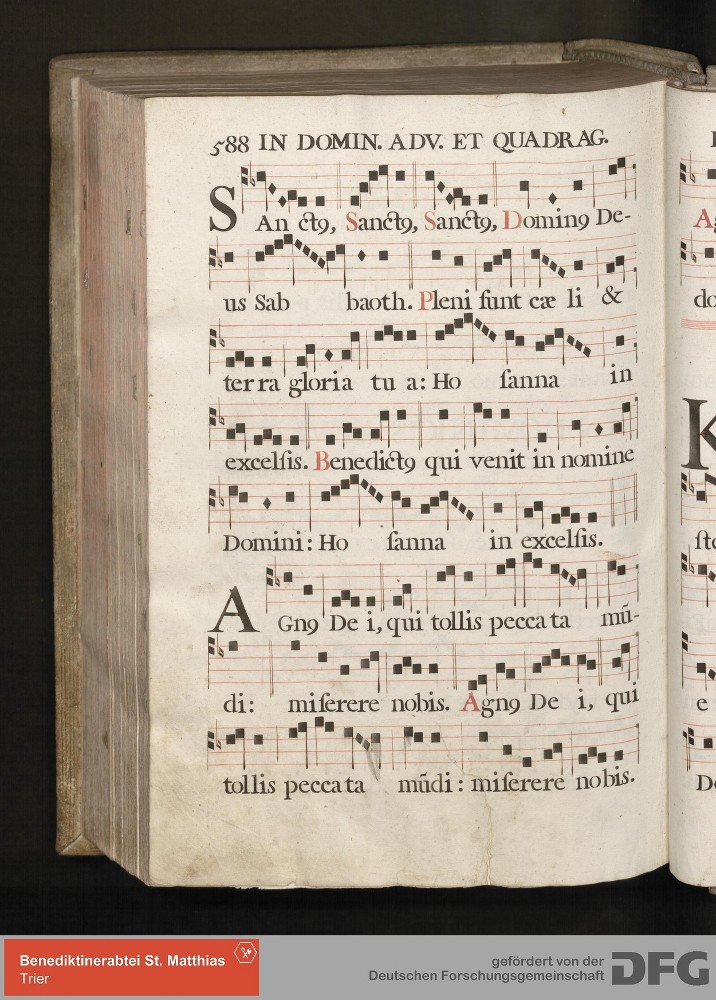 588 IN DOMIN. ADV. ET QUADRAG.
SAn ct9, Sanct9, Sanct9, Domin9 De-
us Sab baoth. Pleni ſunt cæ li &
ter ra gloria tu a: Ho ſanna in
excelſis. Benedict9 qui venit in nomine
Domini: Ho ſanna in excelſis.
AGn9 De i, qui tollis pecca ta mũ-
di: miſerere nobis. Agn9 De i, qui
tollis pecca ta mũdi: miſerere nobis.
A
do
K
ſte
e
D
Benediktinerabtei St. Matthias
Trier
gefördert von der
Deutschen Forschungsgemeinschaft
DFG